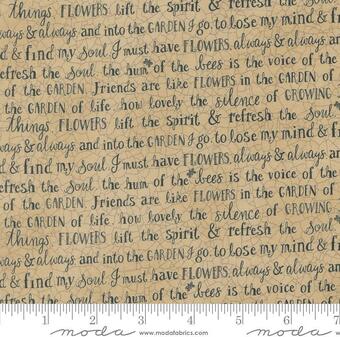 things, FLOWERS lift the Spirit & refresh the Soul.
always & always and into the GARDEN I go, to lose my mind &
d & find my Soul I must have FLOWERS, always & always an
refresh the Soul. the hum of the bees is the voice of the
of the GARDEN. Friends are like FLOWERS in the GARDEN of
the GARDEN of life how lovely the silence of GROWING
things, FLOWERS lift the Spirit & refresh the Soul.
always & always and into the GARDEN I go, to lose my mind &
d & find my Soul I must have FLOWERS, always & always an
refresh the Soul. the hum of the bees is the voice of the
of the GARDEN. Friends are like FLOWERS in the GARDEN of
the GARDEN of life how lovely the silence of GROWING
things, FLOWERS lift the Spirit & refresh the Soul.
always & always and into the GARDEN I go, to lose my mind &
d & find my Soul I must have FLOWERS, always & always an
refresh the Soul. the hum of the bees is the voice of the
1 2 3 4 5 6 7
moda www.modafabrics.com moda